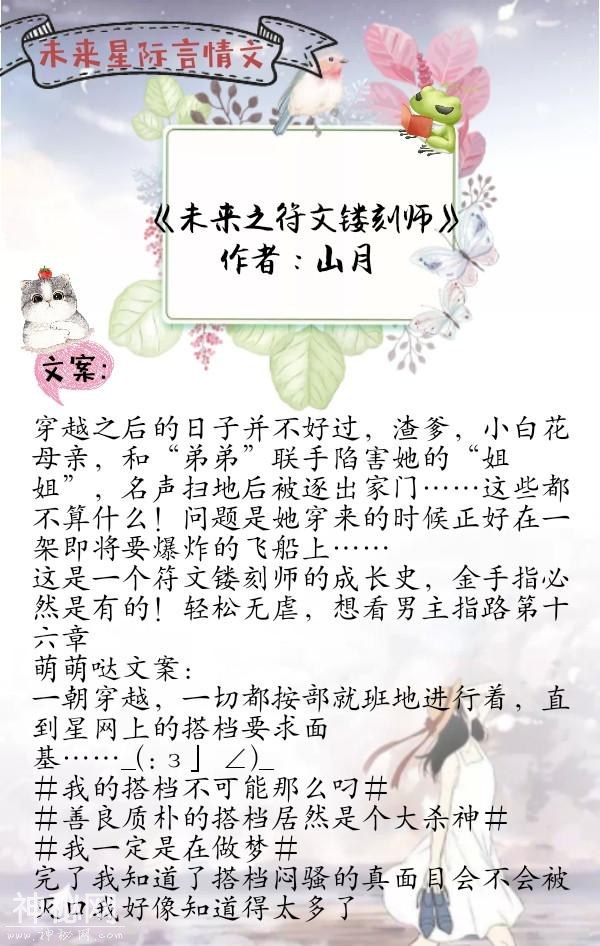 未来星际言情文
《未来之符文镂刻师》
作者：山月
文案：
穿越之后的日子并不好过，渣爹，小白花
母亲，和“弟弟”联手陷害她的“姐
姐”，名声扫地后被逐出家门……这些都
不算什么！问题是她穿来的时候正好在一
架即将要爆炸的飞船上……
这是一个符文镂刻师的成长史，金手指必
然是有的！轻松无虐，想看男主指路第十
六章
萌萌哒文案：
一朝穿越，一切都按部就班地进行着，直
到星网上的搭档要求面
基……_(:з」∠)_
#我的搭档不可能那么叼#
#善良质朴的搭档居然是个大杀神#
#我一定是在做梦#
完了我知道了搭档闷骚的真面目会不会被
灭口我好像知道得太多了
神秘网
www.神秘网.com